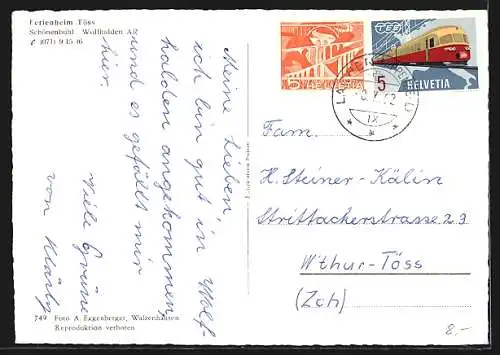 Ferienheim Töss
Schönenbühl Wolfhalden AR
✆ (071) 9 15 46
Meine Lieben,
ich bin gut in Wolf-
halden angekommen,
und es gefällt mir
hier.
Viele Grüsse
von Klärly
749 Foto A. Eggenberger, Walzenhausen
Reproduktion verboten
5 HELVETIA
TEE
5 HELVETIA
IX
Fam.
H. Steiner-Kälin
Strittackerstrasse 23
Wthur-Töss
(Zch)
8.-